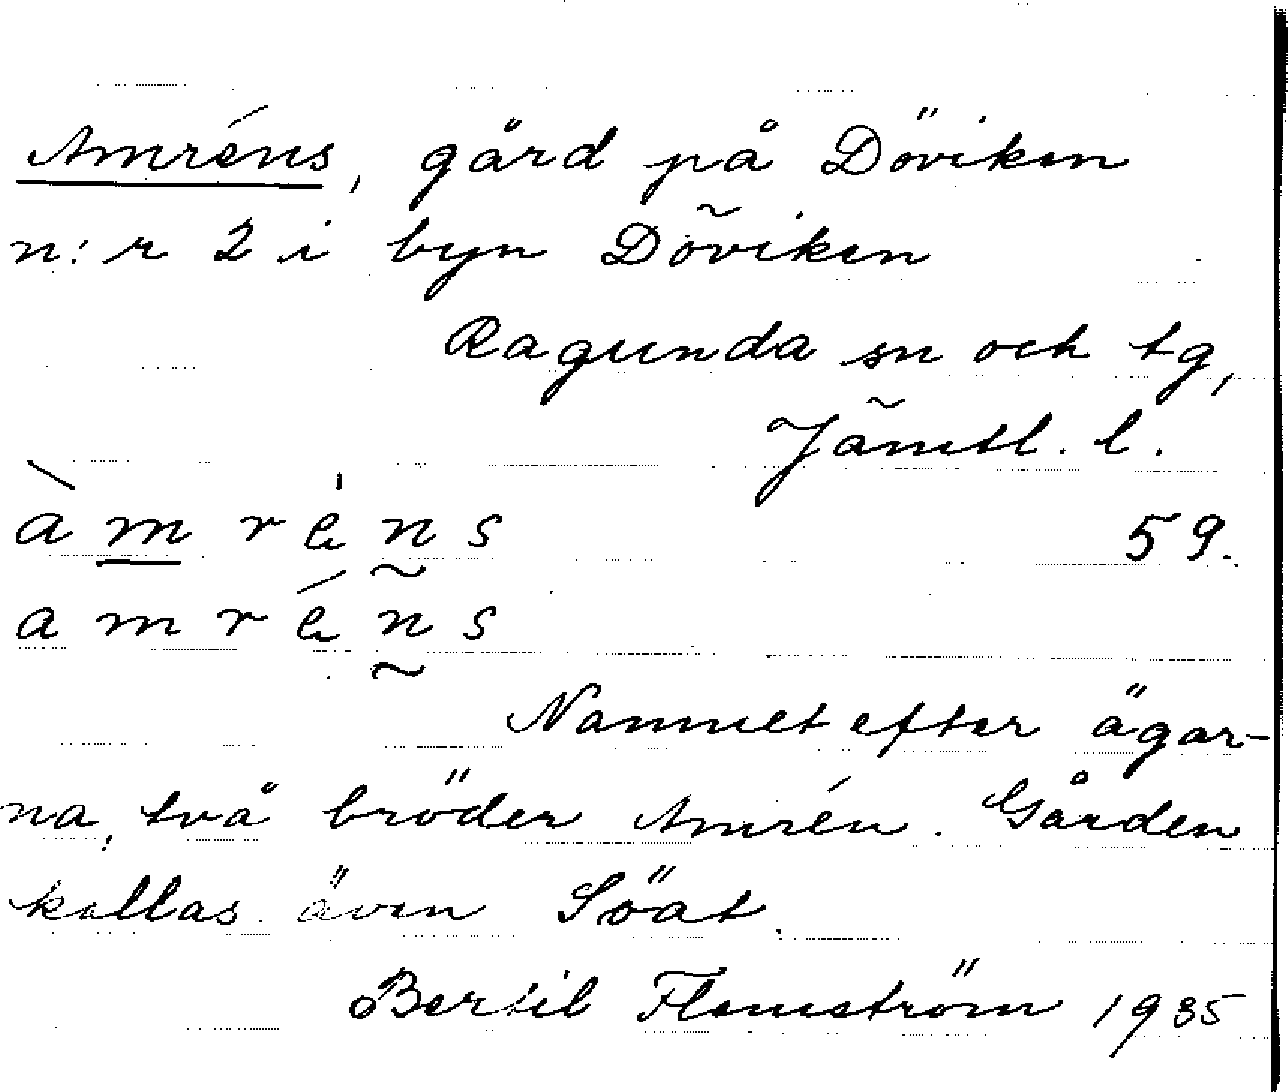 Amréns, gård på Döviken
n:r 2 i byn Döviken
Ragunda sn och tg,
Jämtl. l.
àmréns 59.
amréns
Namnet efter ägar-
na, två bröder Amrén. Gården
kallas även Söat.
Bertil Flemström 1935